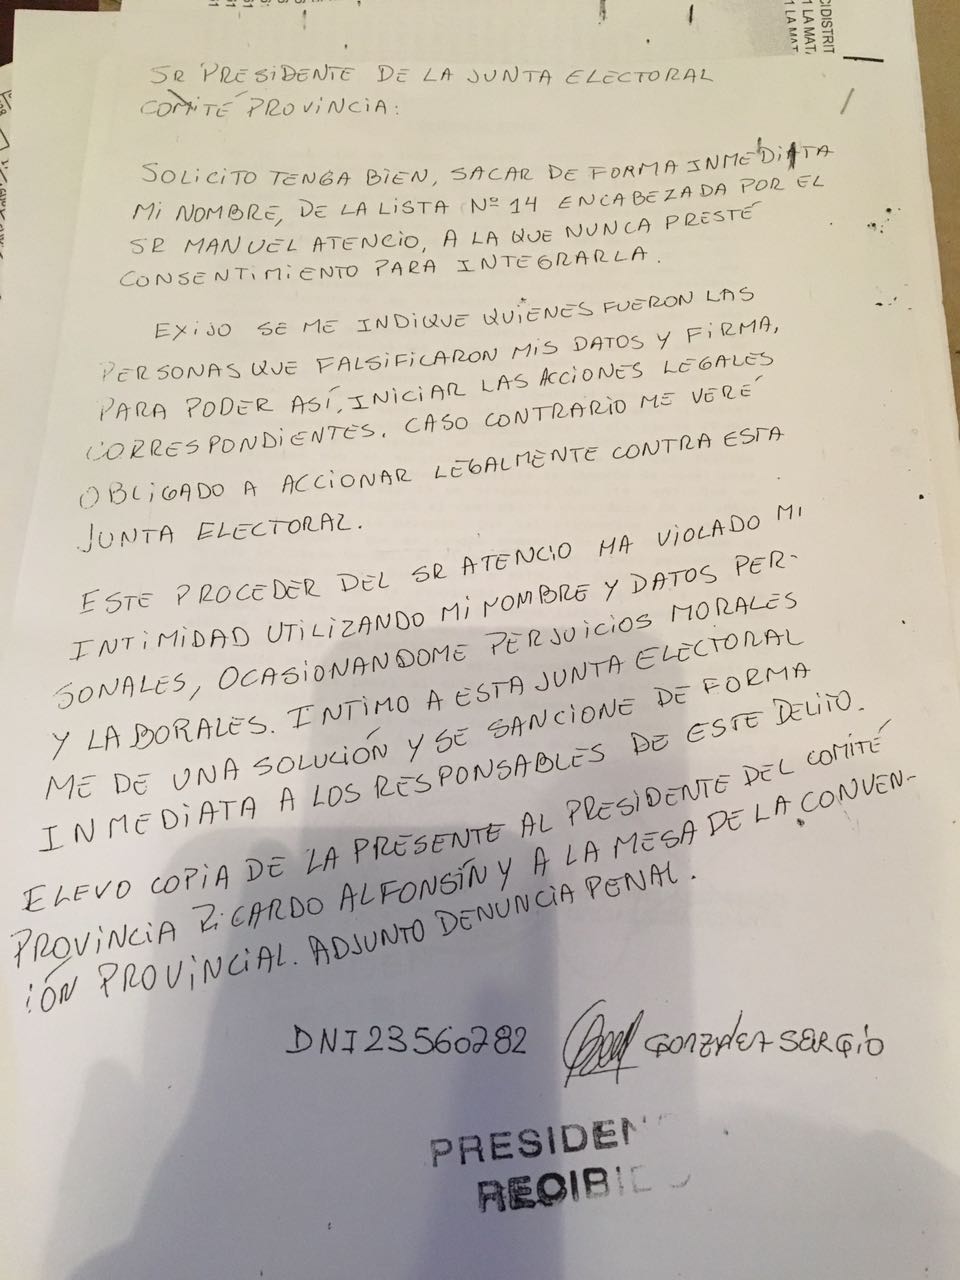 CIDISTRIT
1 LA MAT
1 LA MAT
SR PRESIDENTE DE LA JUNTA ELECTORAL
COMITÉ PROVINCIA:
SOLICITO TENGA BIEN, SACAR DE FORMA INMEDIATA
MI NOMBRE, DE LA LISTA Nº 14 ENCABEZADA POR EL
SR MANUEL ATENCIO, A LA QUE NUNCA PRESTÉ
CONSENTIMIENTO PARA INTEGRARLA.
EXIJO SE ME INDIQUE QUIENES FUERON LAS
PERSONAS QUE FALSIFICARON MIS DATOS Y FIRMA,
PARA PODER ASÍ, INICIAR LAS ACCIONES LEGALES
CORRESPONDIENTES. CASO CONTRARIO ME VERÉ
OBLIGADO A ACCIONAR LEGALMENTE CONTRA ESTA
JUNTA ELECTORAL.
ESTE PROCEDER DEL SR ATENCIO HA VIOLADO MI
INTIMIDAD UTILIZANDO MI NOMBRE Y DATOS PER-
SONALES, OCASIONANDOME PERJUICIOS MORALES
Y LABORALES. INTIMO A ESTA JUNTA ELECTORAL
ME DE UNA SOLUCIÓN Y SE SANCIONE DE FORMA
INMEDIATA A LOS RESPONSABLES DE ESTE DELITO.
ELEVO COPIA DE LA PRESENTE AL PRESIDENTE DEL COMITÉ
PROVINCIA RICARDO ALFONSÍN Y A LA MESA DE LA CONVEN-
IÓN PROVINCIAL. ADJUNTO DENUNCIA PENAL.
DNI 23560282 GONZALEZ SERGIO
PRESIDEN
RECIBID